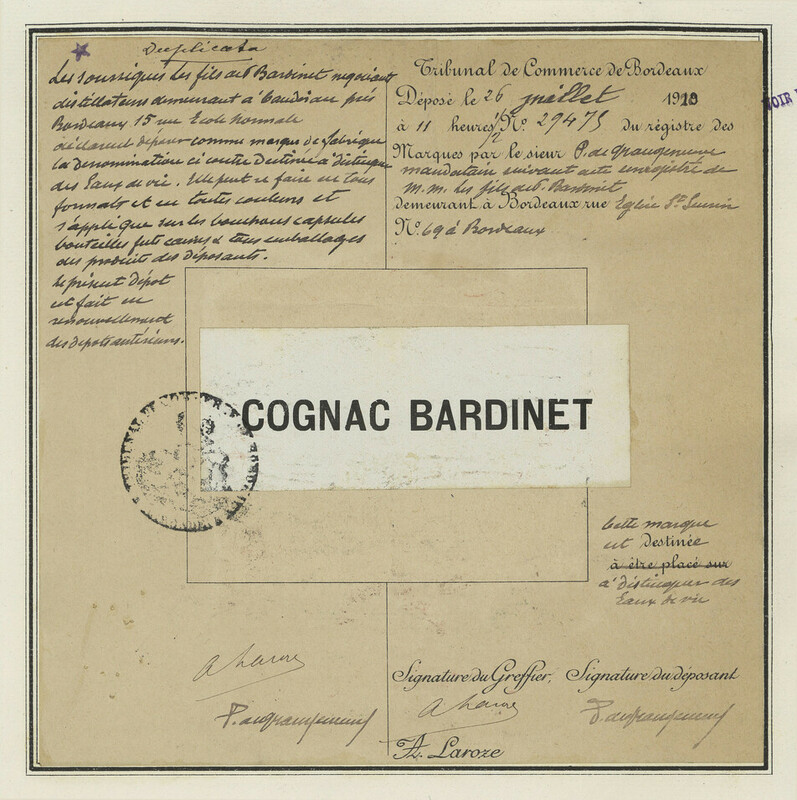 Duplicata
Les soussignés Les fils de P. Bardinet négociants
distillateurs demeurant à Caudéran près
Bordeaux 15 rue Ecole Normale
déclarent déposer comme marque de fabrique
la dénomination ci contre destinée à distinguer
des Eaux de vie. Elle peut se faire en tous
formats et en toutes couleurs et
s'applique sur les bouchons capsules
bouteilles futs caisses & tous emballages
des produits des déposants.
Le présent dépot
est fait en
renouvellement
des depots antérieurs.
Tribunal de Commerce de Bordeaux
Déposé le 26 juillet 1910
à 11 heures 1/2 N° 29475 du régistre des
Marques par le sieur P. de Grangeneuve
mandataire suivant acte enregistré de
M.M. Les fils de P. Bardinet
demeurant à Bordeaux rue Eglise St Seurin
N° 69 à Bordeaux
VOIR
COGNAC BARDINET
Cette marque
est destinée
à être placé sur
à distinguer des
Eaux de vie
Signature du Greffier, Signature du déposant
A Laroze
P. de Grangeneuve
A Laroze
P. de Grangeneuve
A. Laroze